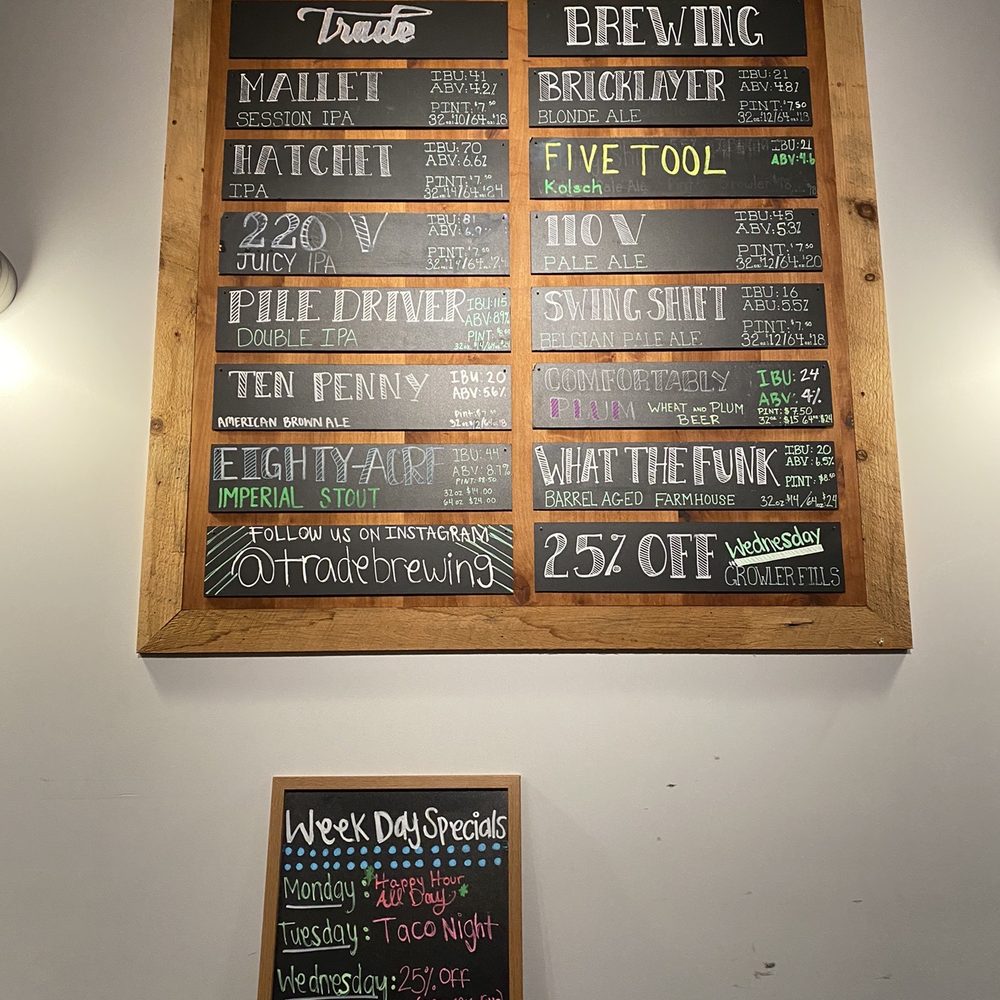 Trade BREWING
MALLET IBU: 41
ABV: 4.2%
SESSION IPA PINT: $7.50
32oz $10/64oz $18
HATCHET IBU: 70
ABV: 6.6%
IPA PINT: $7.50
32oz $14/64oz $24
220 V IBU: 81
JUICY IPA PINT: $7.50
PILE DRIVER IBU: 115
ABV: 8.9%
DOUBLE IPA PINT:
TEN PENNY IBU: 20
ABV: 5.6%
AMERICAN BROWN ALE Pint:
EIGHTY-ACRE IBU: 44
ABV: 8.7%
PINT: $8.50
IMPERIAL STOUT 32oz $14.00
64oz $24.00
FOLLOW US ON INSTAGRAM
@tradebrewing
BRICKLAYER IBU: 21
ABV: 4.8%
BLONDE ALE PINT: $7.50
32oz $12/64oz $18
FIVE TOOL IBU: 21
ABV: 4.6
Kolsch
110 V IBU: 45
ABV: 5.3%
PALE ALE PINT: $7.50
32oz $12/64oz $20
SWING SHIFT IBU: 16
ABU: 5.5%
BELGIAN PALE ALE PINT: $7.50
32oz $12/64oz $18
COMFORTABLY IBU: 24
PLUM ABV: 4%
WHEAT AND PLUM BEER PINT: $7.50
32oz: $15 64oz: $24
WHAT THE FUNK IBU: 20
ABV: 6.5%
PINT: $8.50
BARREL AGED FARMHOUSE 32oz $14/64oz $24
25% OFF Wednesday
GROWLER FILLS
Week Day Specials
Monday: Happy Hour
All Day
Tuesday: Taco Night
Wednesday: 25% Off